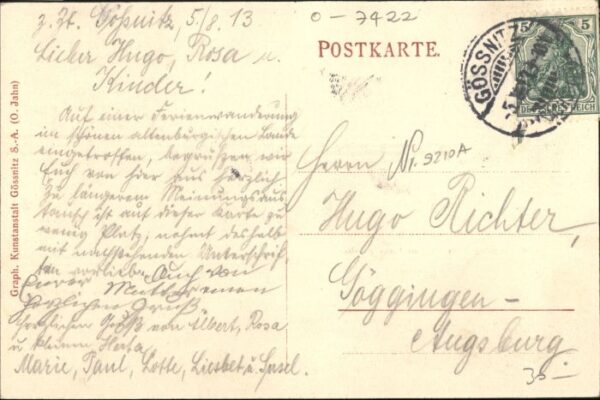 z. Zt. Gößnitz, 5/8. 13
Lieber Hugo, Rosa u.
Kinder!
Auf einer Ferienwanderung
im schönen altenburgischen Lande
eingetroffen, begrüssen wir
Euch von hier aus herzlich
Zu längerem Meinungsaus
tausch ist auf dieser Karte zu
wenig Platz, nehmt deshalb
mit nachstehenden Unterschrif
ten vorlieb. Auch von
Eurer Mutter einen
herzlichen Gruß
Herzlichen Gruß von Albert, Rosa
u. kleinem
Marie, Paul, Lotte, Liesbet u.
0-7422
POSTKARTE.
GÖSSNITZ
5 5
DEUTSCHES REICH
Nr. 9210A
Herrn
Hugo Richter,
Göggingen-
Augsburg.
35-
Graph. Kunstanstalt Gössnitz S.-A. (O. Jahn)